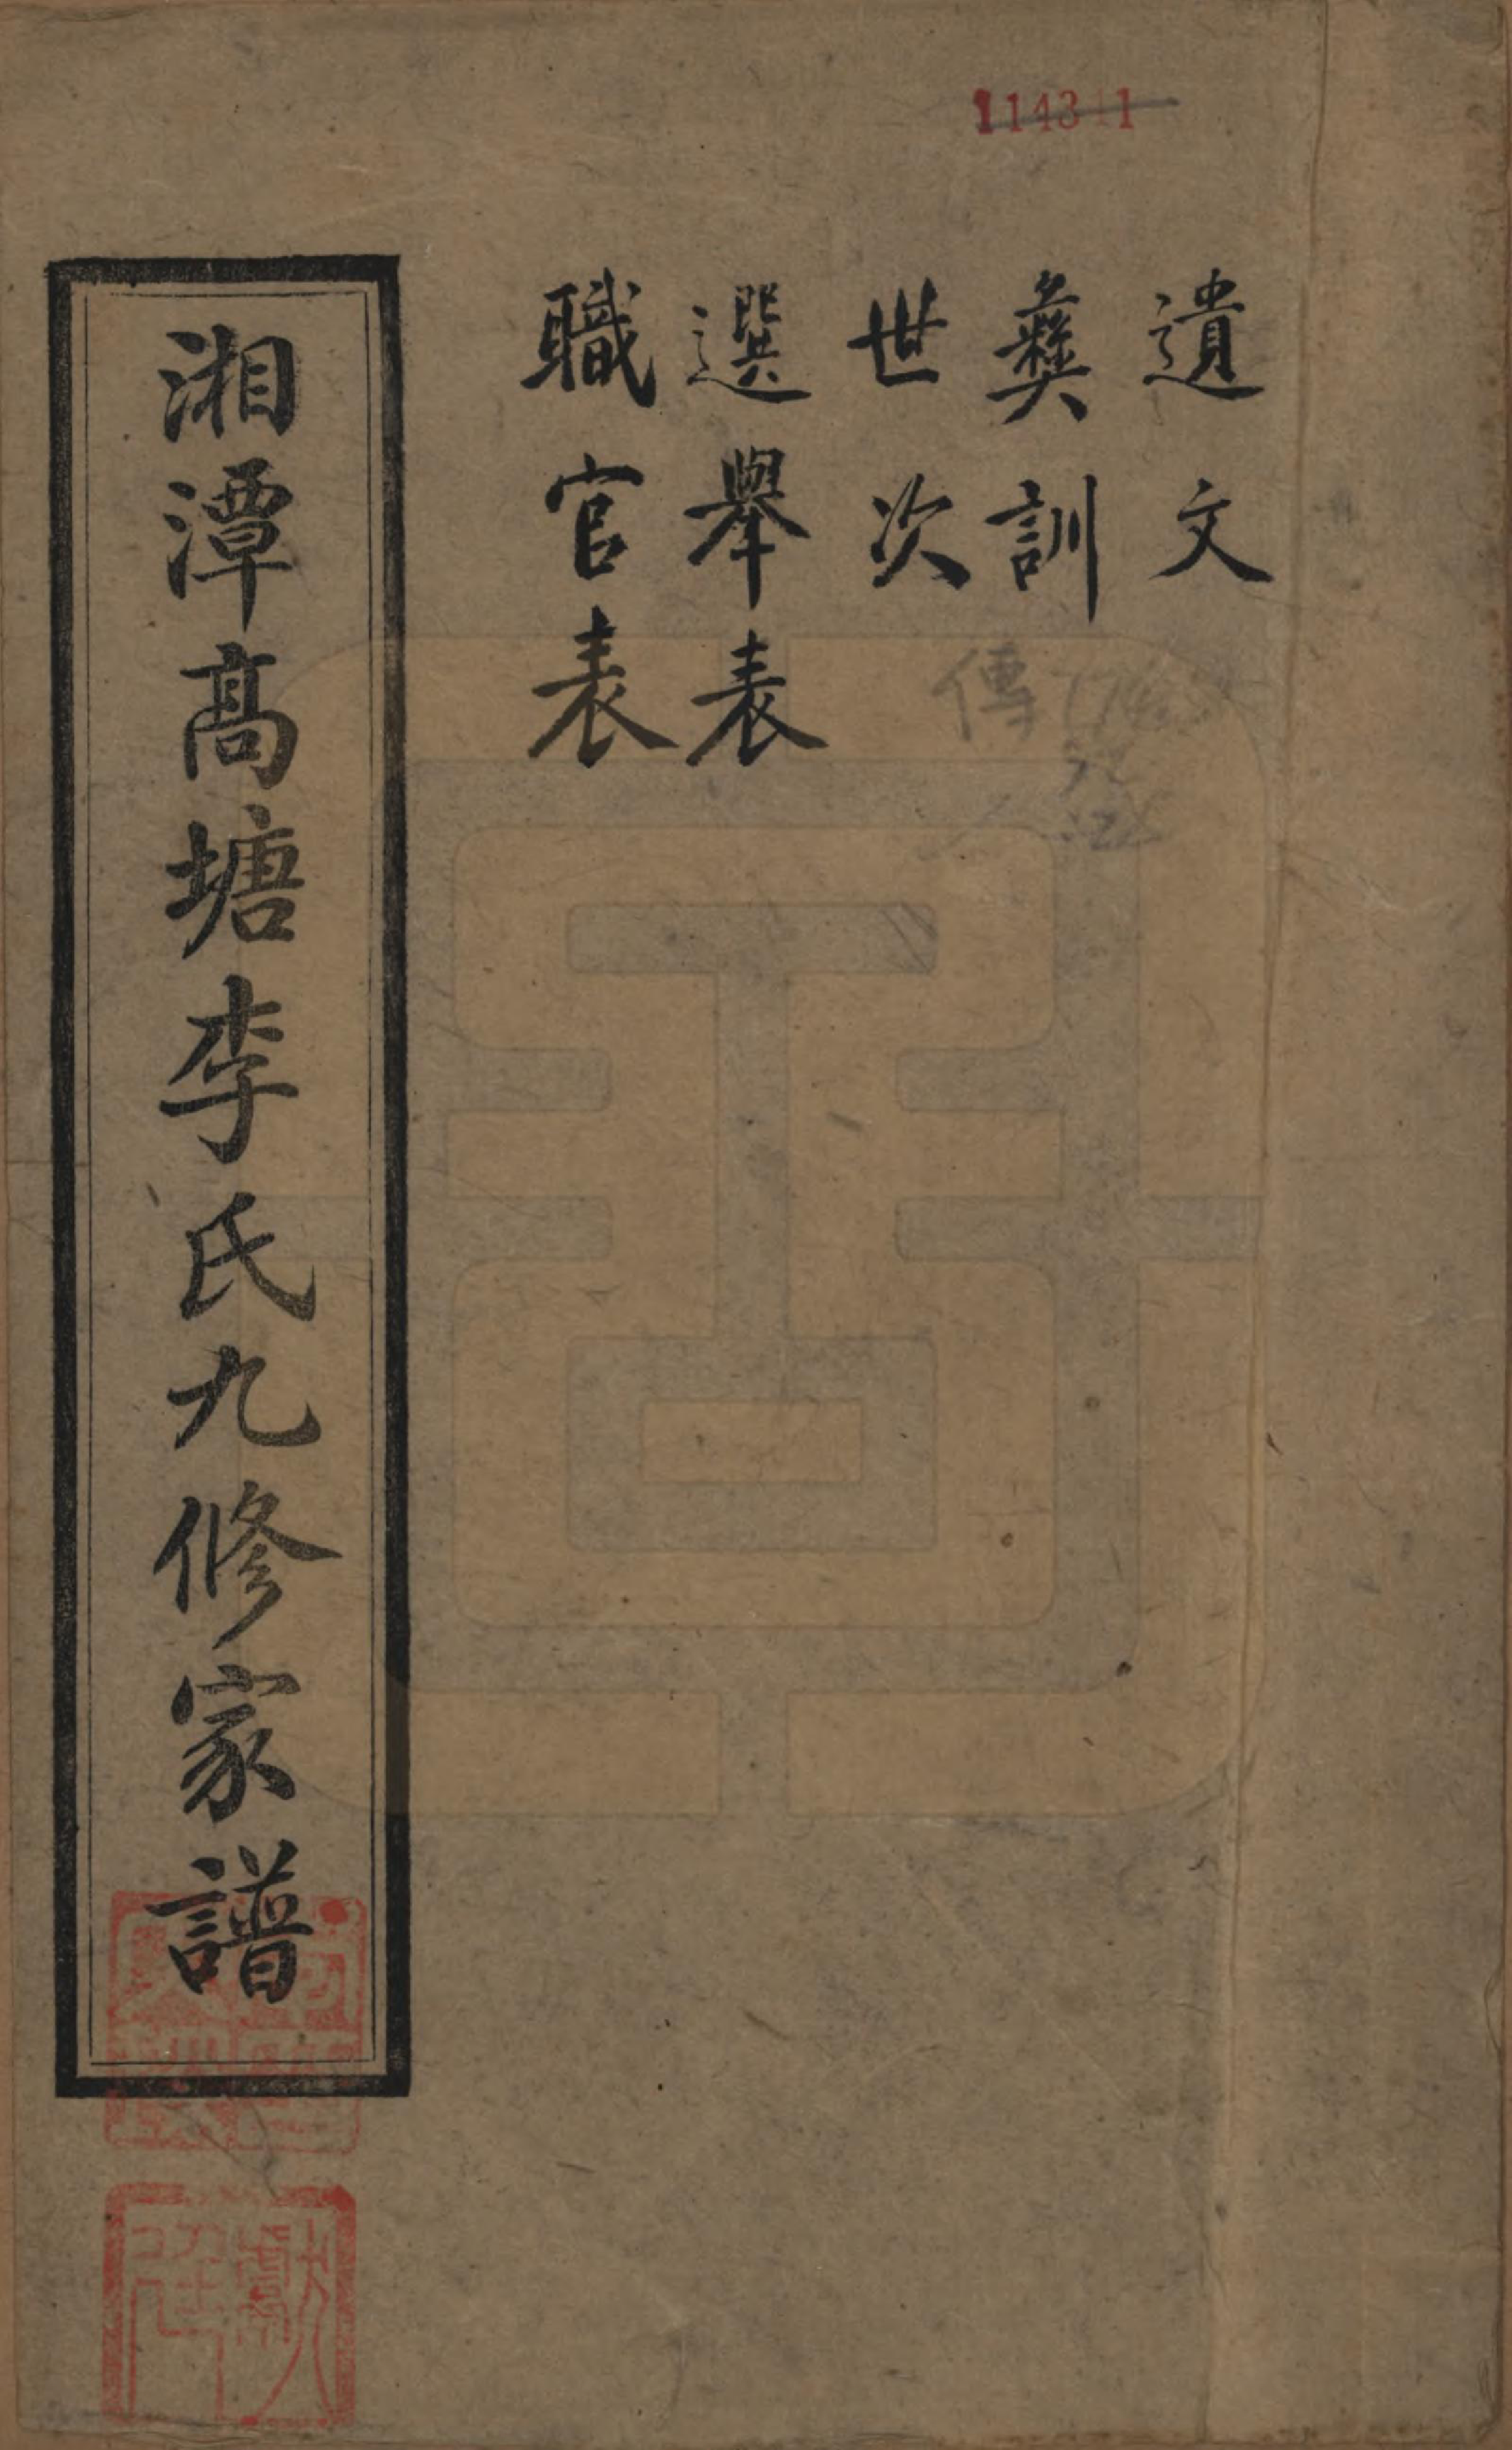 114311
遺文
彝訓
傳
世次
選舉表
職官表
湘潭高塘李氏九修家譜